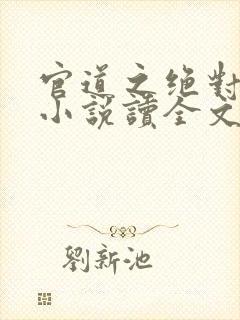 官道之绝對
小說讀全文
劉新池